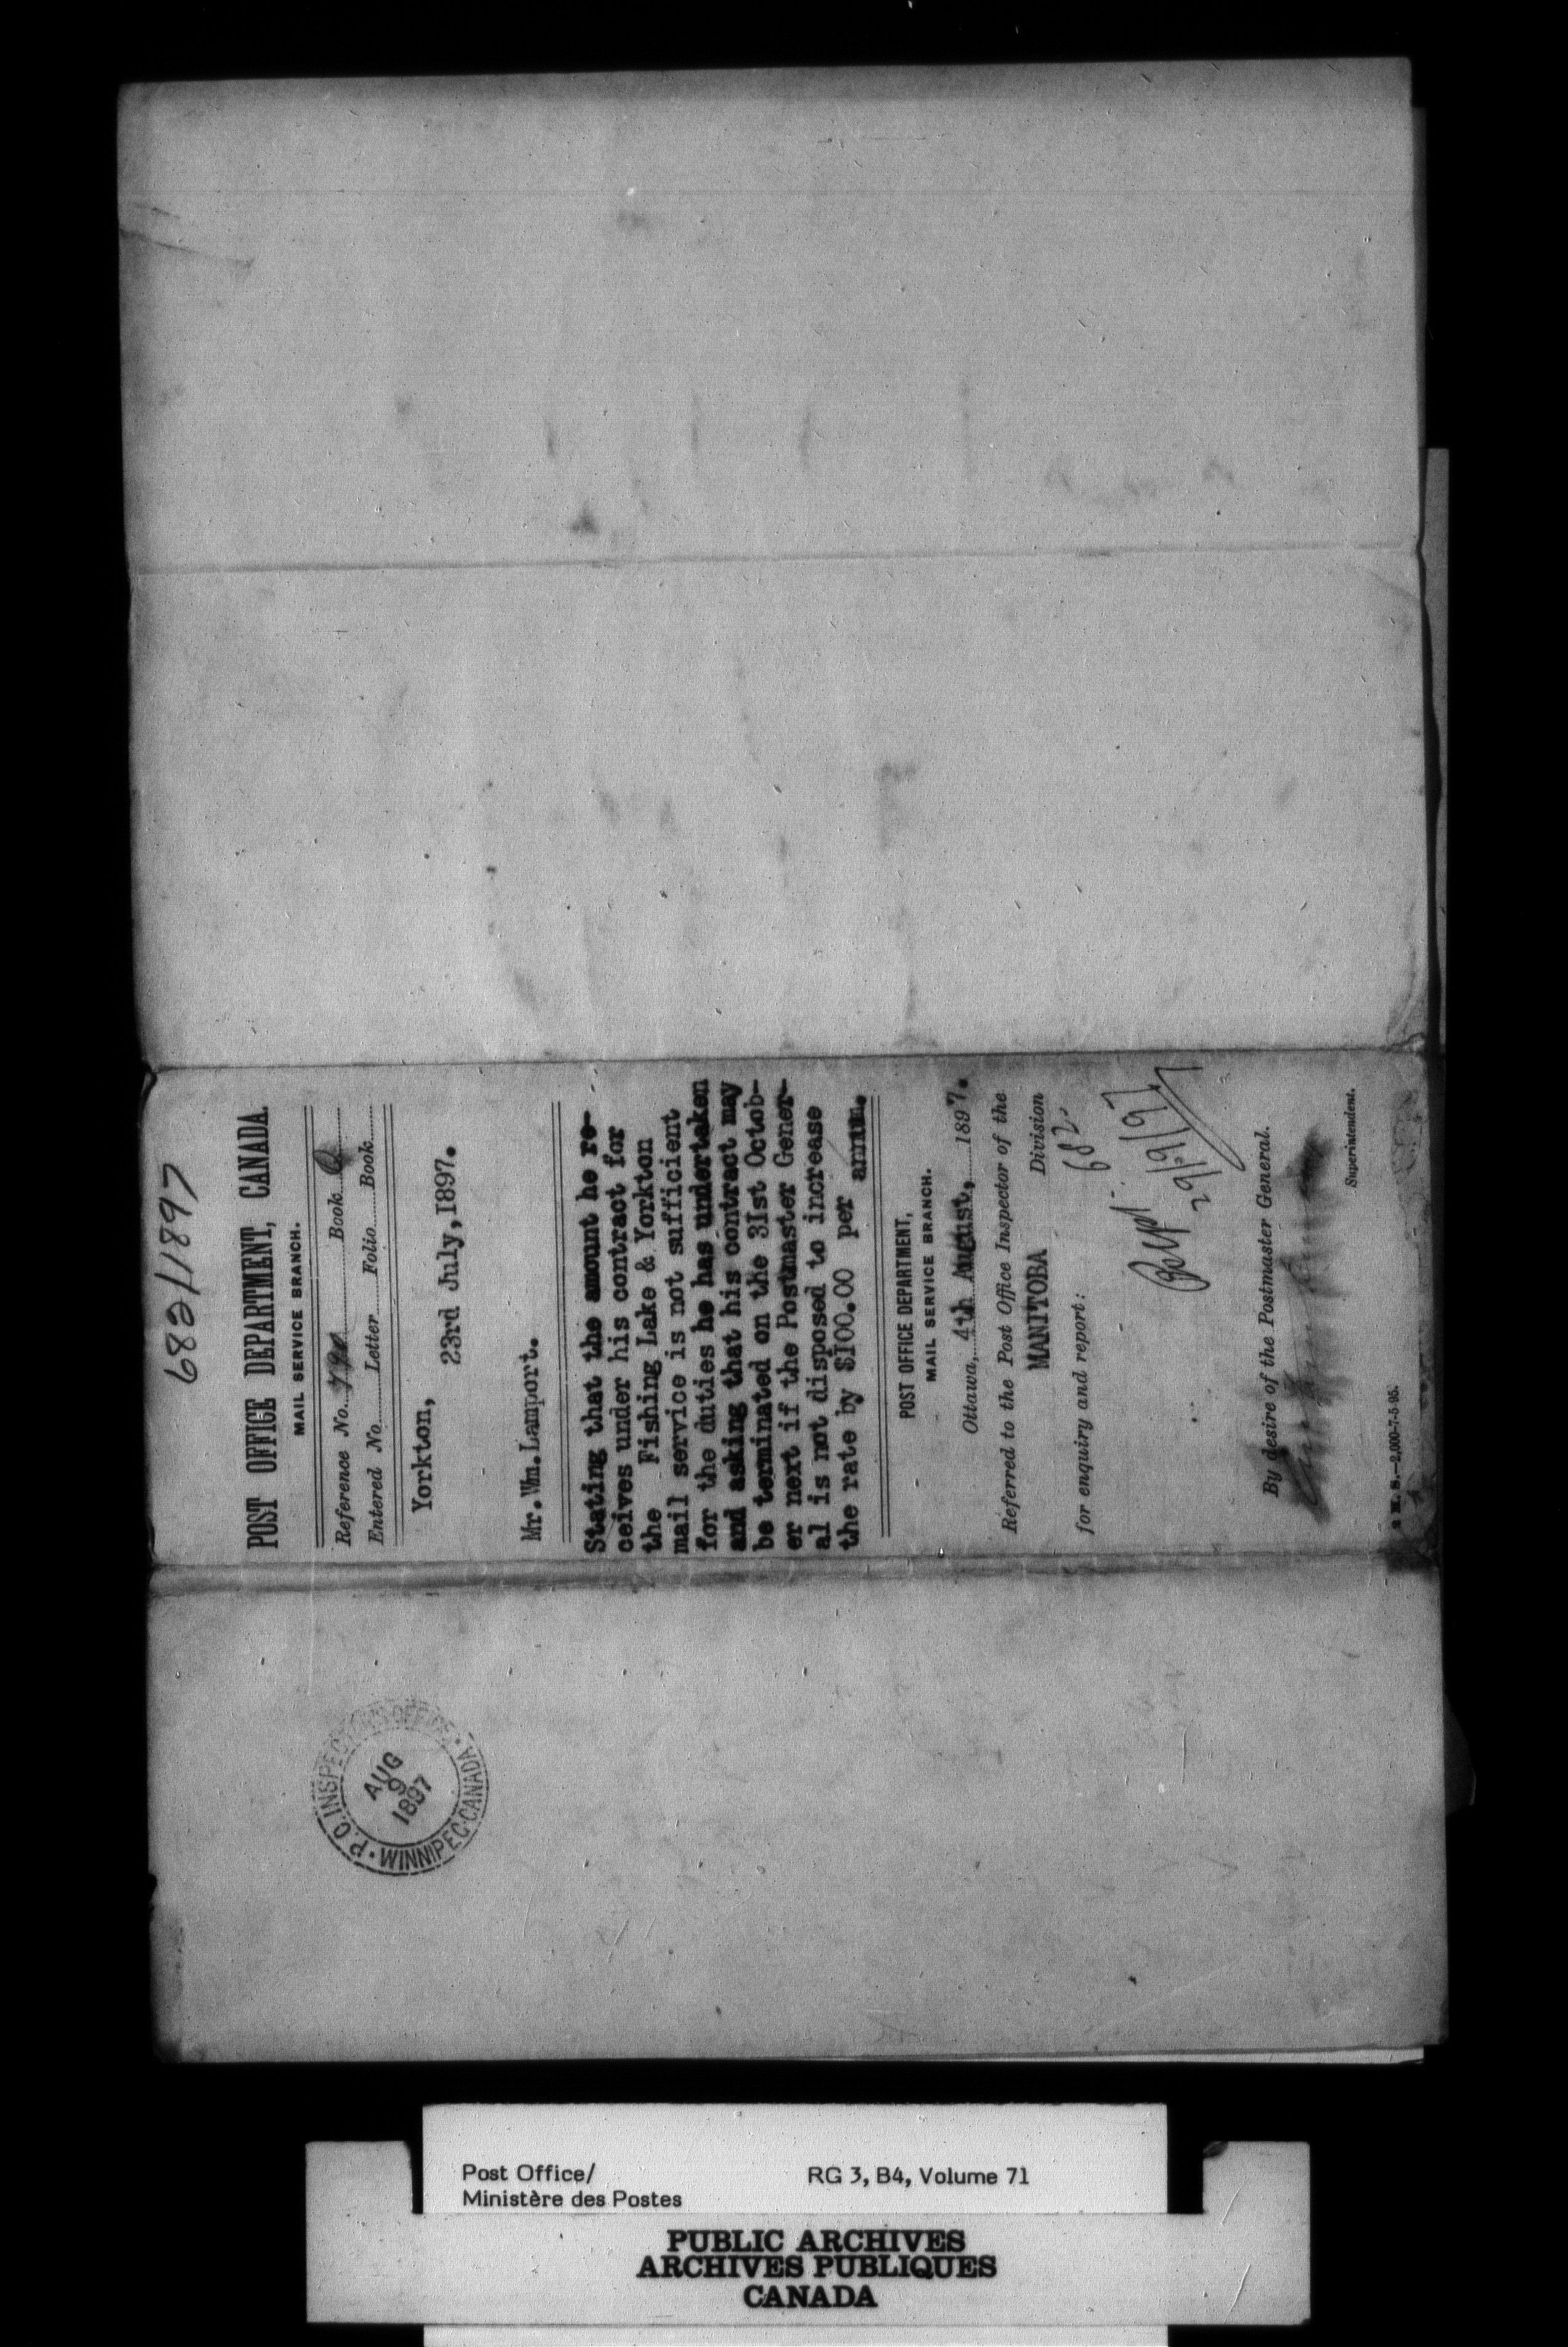 682/1897
POST OFFICE DEPARTMENT, CANADA.
MAIL SERVICE BRANCH.
Reference No. Book
Entered No. Letter Folio Book
Yorkton,
23rd July,1897.
Mr.Wm.Lamport.
Stating that the amount he re-
ceives under his contract for
the Fishing Lake & Yorkton
mail service is not sufficient
for the duties he has undertaken
and asking that his contract may
be terminated on the 3Ist Octob-
er next if the Postmaster Gener-
al is not disposed to increase
the rate by $I00.00 per annum.
POST OFFICE DEPARTMENT,
MAIL SERVICE BRANCH.
Ottawa, 4th August, 1897.
Referred to the Post Office Inspector of the
MANITOBA Division
for enquiry and report:
682
29/9/97
By desire of the Postmaster General.
Superintendent.
M. S.—2,000-7-5-95.
P.O. INSPECTOR'S OFFICE
AUG
9
1897
WINNIPEG-CANADA
Post Office/
Ministère des Postes
RG 3, B4, Volume 71
PUBLIC ARCHIVES
ARCHIVES PUBLIQUES
CANADA